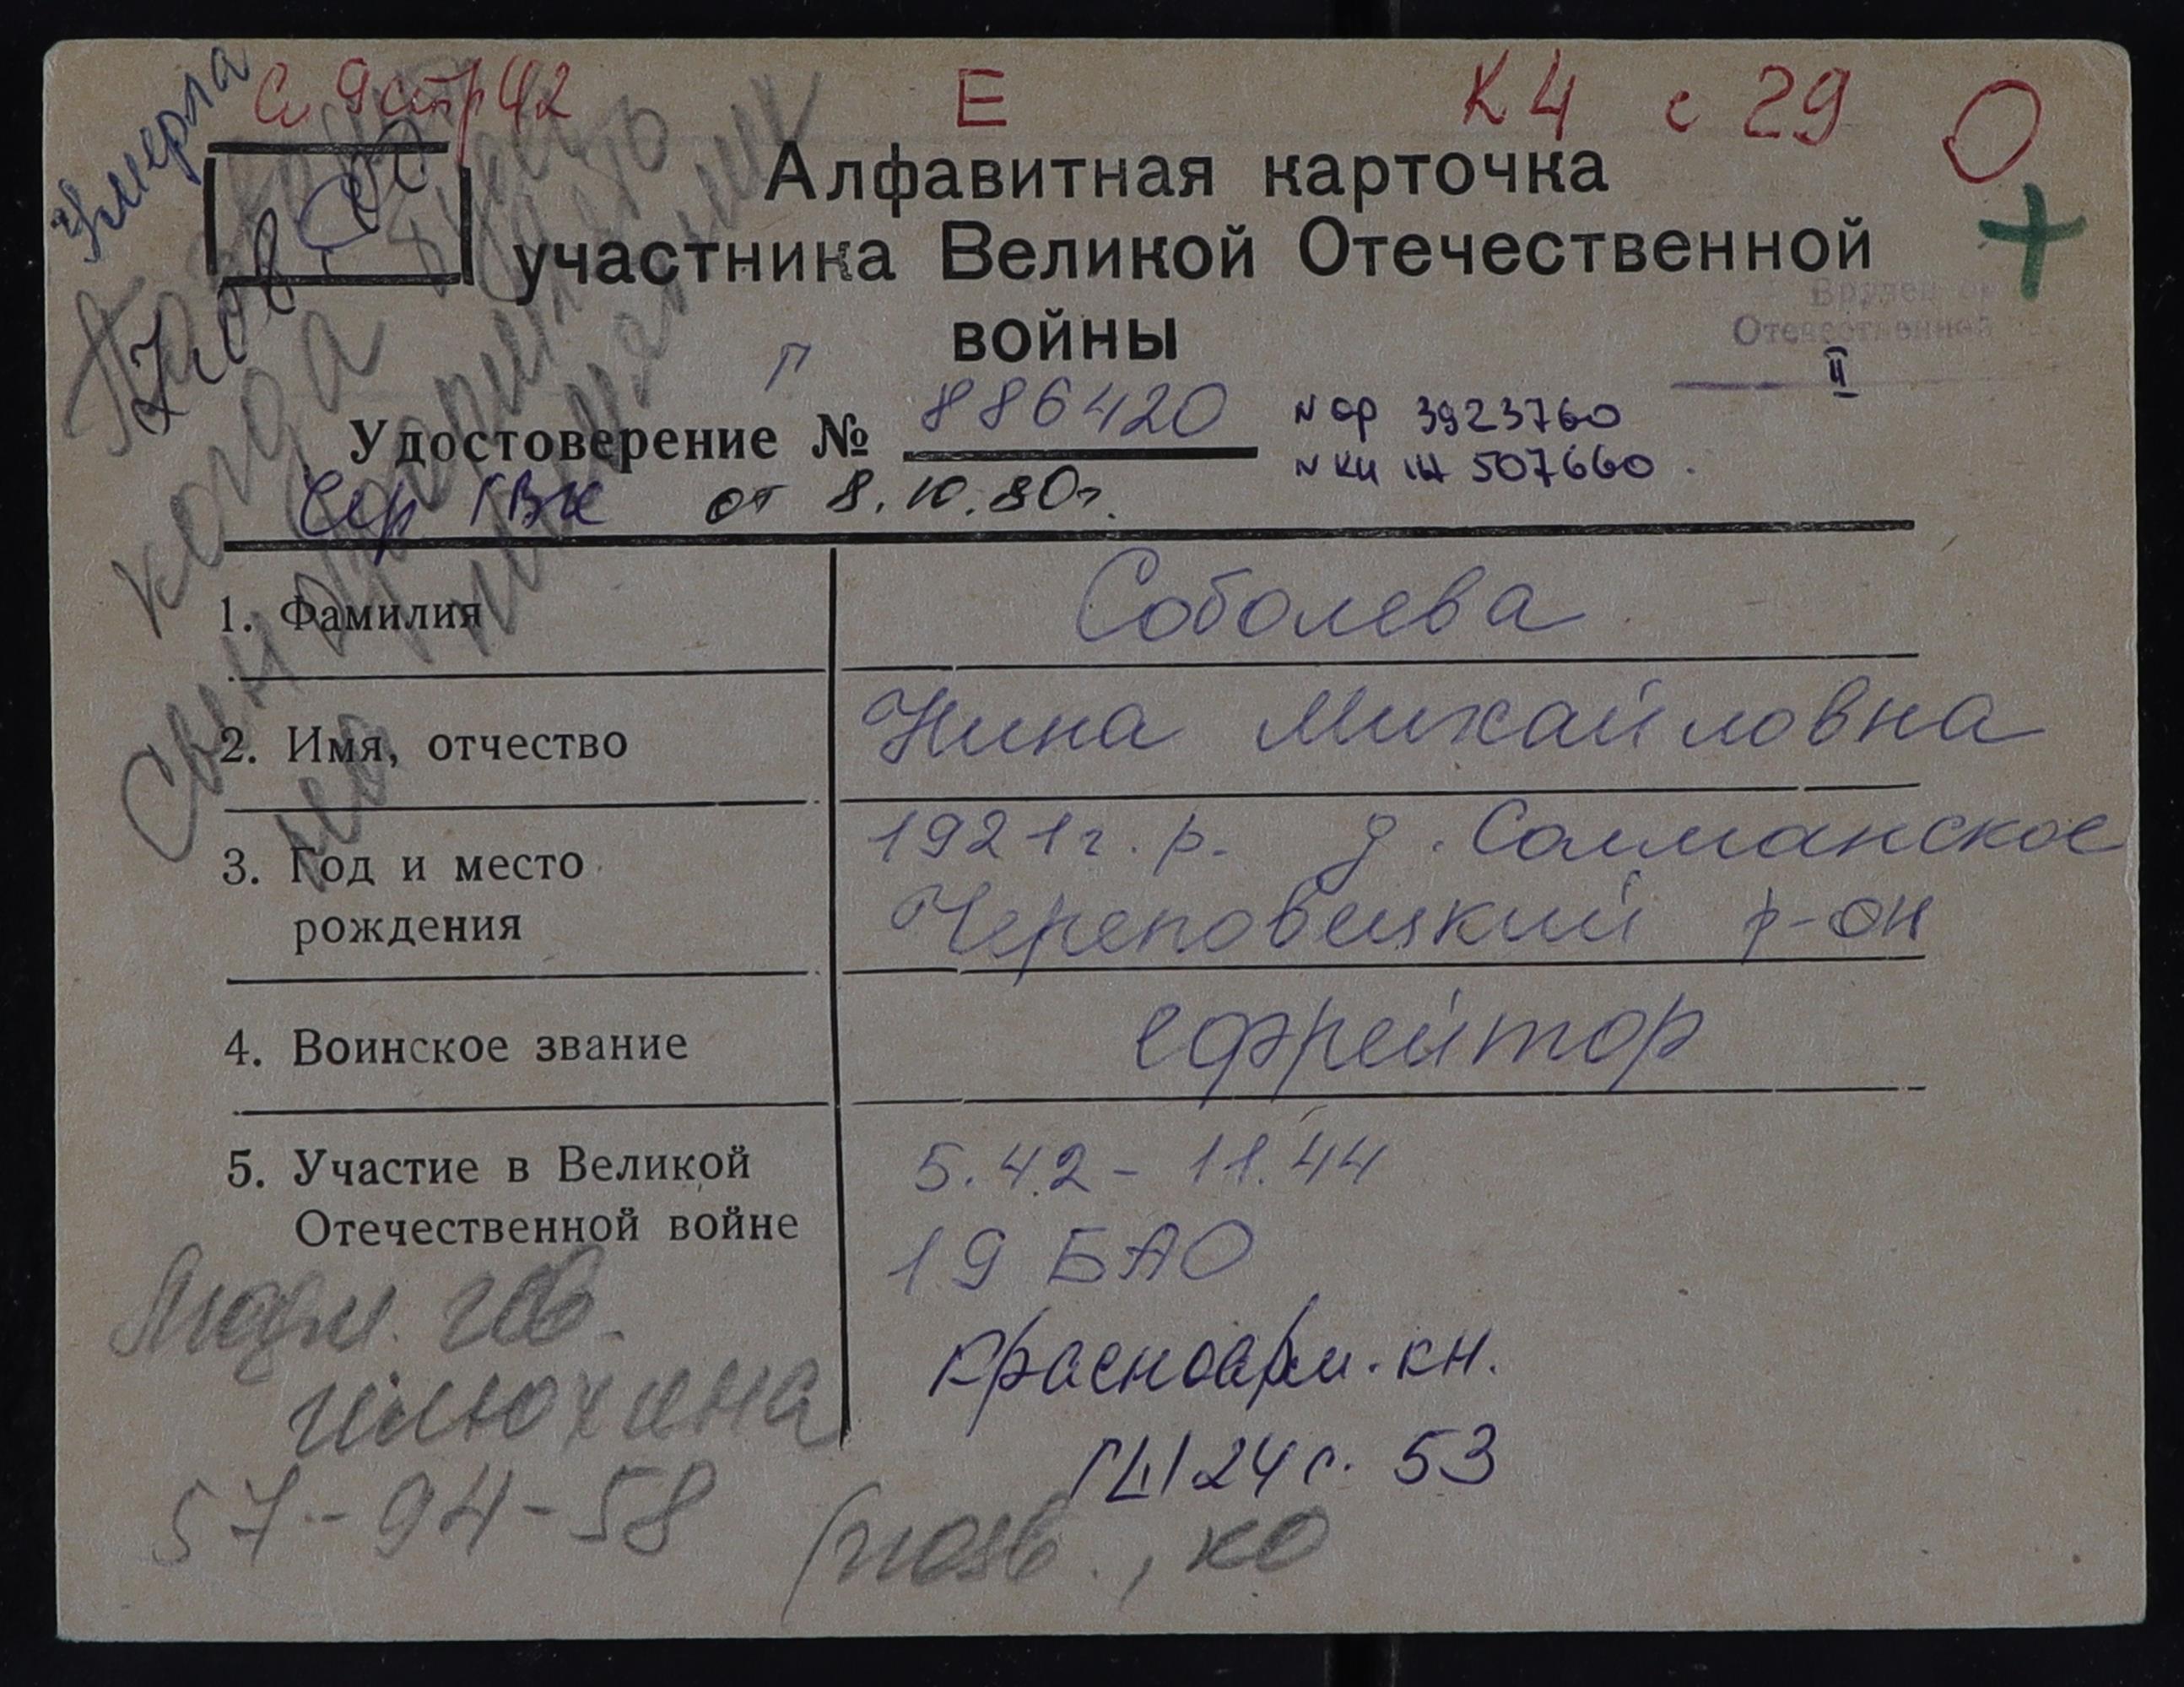 Умерла
Сп 9 стр 42
Е
К4 с 29
О
+
Алфавитная карточка
участника Великой Отечественной
войны
Вручен ор
Отечественной
II
Г
Удостоверение № 886420
№ ор 3923760
№ кн 507660.
ГВК от 8.10.80г.
1. Фамилия Соболева
2. Имя, отчество Нина Михайловна
3. Год и место рождения 1921г.р. д. Солманское
Череповецкий р-он
4. Воинское звание ефрейтор
5. Участие в Великой Отечественной войне 5.42 - 11.44
19 БАО
красноарм. кн.
24 с. 53
57-94-58